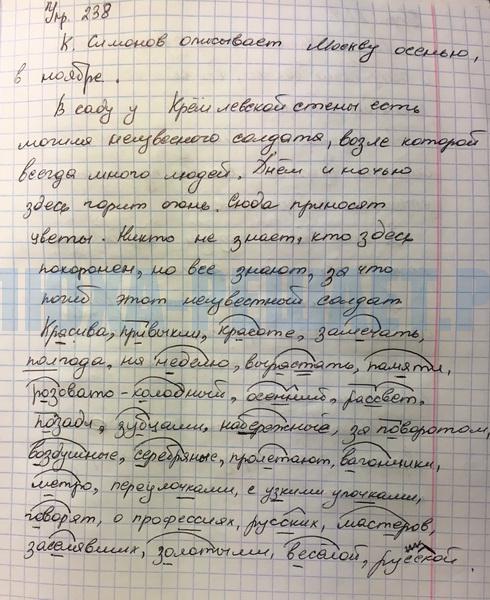 Упр. 238
К. Симонов описывает Москву осенью,
в ноябре.
В саду у Кремлевской стены есть
могила неизвесного солдата, возле которой
всегда много людей. Днём и ночью
здесь горит огонь. Сюда приносят
цветы. Никто не знает, кто здесь
похоронен, но все знают, за что
погиб этот неизвестный солдат
Красива, привыкли, красоте, замечать,
полгода, на неделю, вырастать, памяти,
розовато-холодный, осенний, рассвет,
позади, зубцами, набережные, за поворотом,
воздушные, серебряные, пролетают, вагончики,
метро, переулочками, с узкими улочками,
говорят, о профессиях, русских, мастеров,
заселявших, золотыми, веселой, русской.